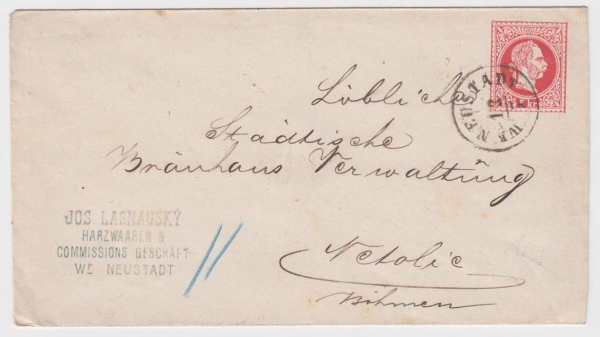 Löbliche
Städtische
Bräuhaus Verwaltung
Netolic
Böhmen
JOS. LASNAUSKÝ
HARZWAAREN &
COMMISSIONS GESCHÄFT
WR NEUSTADT
WR NEUSTADT